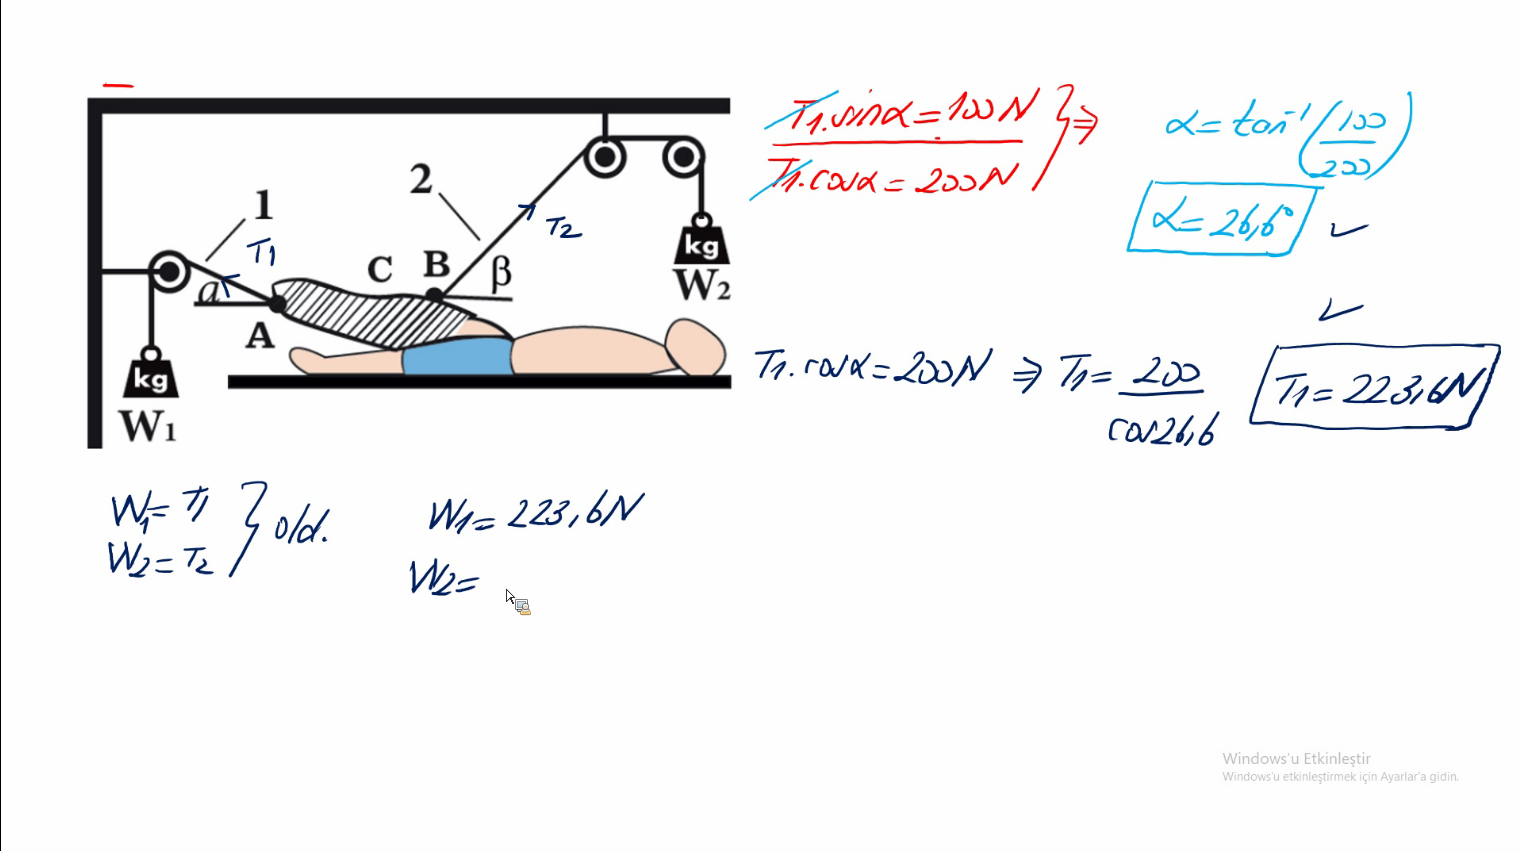 1
2
T1
T2
C
B
β
α
A
kg
W1
kg
W2
T1.sinα = 100N
T1.cosα = 200N
} ⇒
α = tan⁻¹(100/200)
α = 26,6°
T1.cosα = 200N ⇒ T1 = 200/cos26,6
T1 = 223,6N
W1 = T1
W2 = T2
} old.
W1 = 223,6N
W2 =
Windows'u Etkinleştir
Windows'u etkinleştirmek için Ayarlar'a gidin.